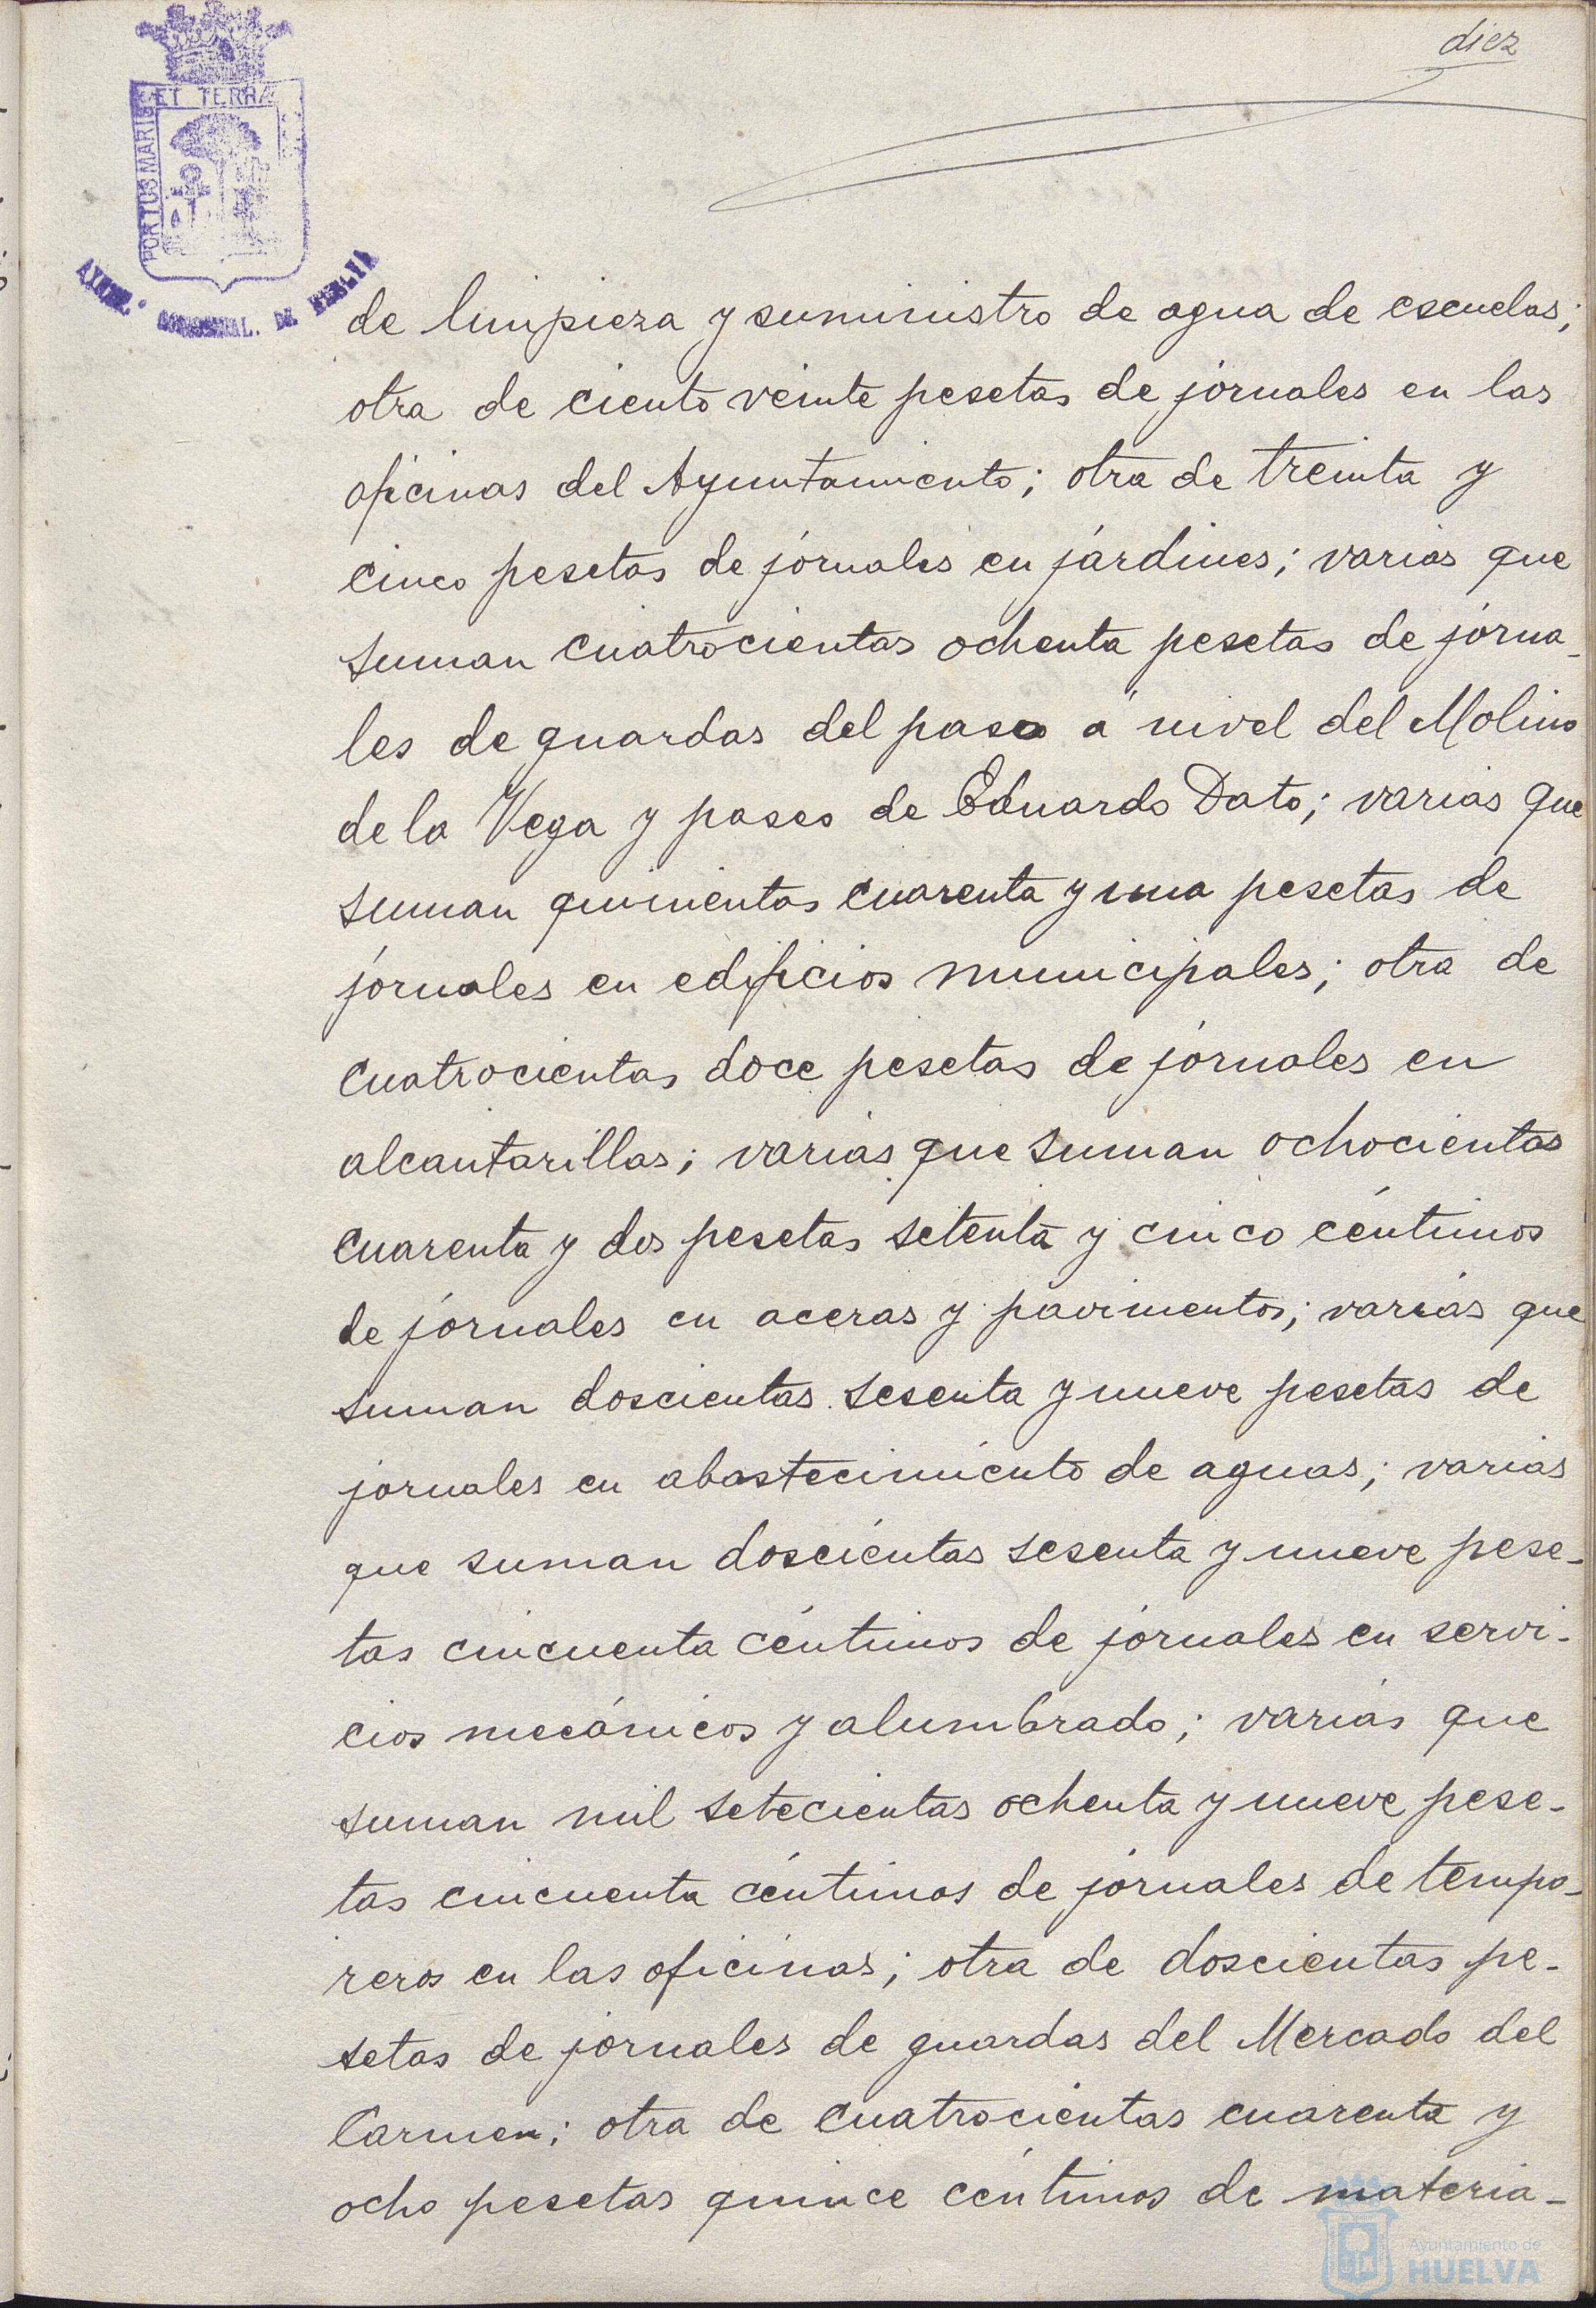 diez
PORTUS MARIS ET TERRÆ
de limpieza y suministro de agua de escuelas;
otra de ciento veinte pesetas de jornales en las
oficinas del Ayuntamiento; otra de treinta y
cinco pesetas de jornales en jardines; varias que
suman cuatrocientas ochenta pesetas de jorna-
les de guardas del paso a nivel del Molino
de la Vega y paseo de Eduardo Dato; varias que
suman quinientas cuarenta y una pesetas de
jornales en edificios municipales; otra de
cuatrocientas doce pesetas de jornales en
alcantarillas; varias que suman ochocientas
cuarenta y dos pesetas setenta y cinco céntimos
de jornales en aceras y pavimentos; varias que
suman doscientas sesenta y nueve pesetas de
jornales en abastecimiento de aguas; varias
que suman doscientas sesenta y nueve pese-
tas cincuenta céntimos de jornales en servi-
cios mecánicos y alumbrado; varias que
suman mil setecientas ochenta y nueve pese-
tas cincuenta céntimos de jornales de tempo-
reros en las oficinas; otra de doscientas pe-
setas de jornales de guardas del Mercado del
Carmen; otra de cuatrocientas cuarenta y
ocho pesetas quince céntimos de materia-
Ayuntamiento de
HUELVA